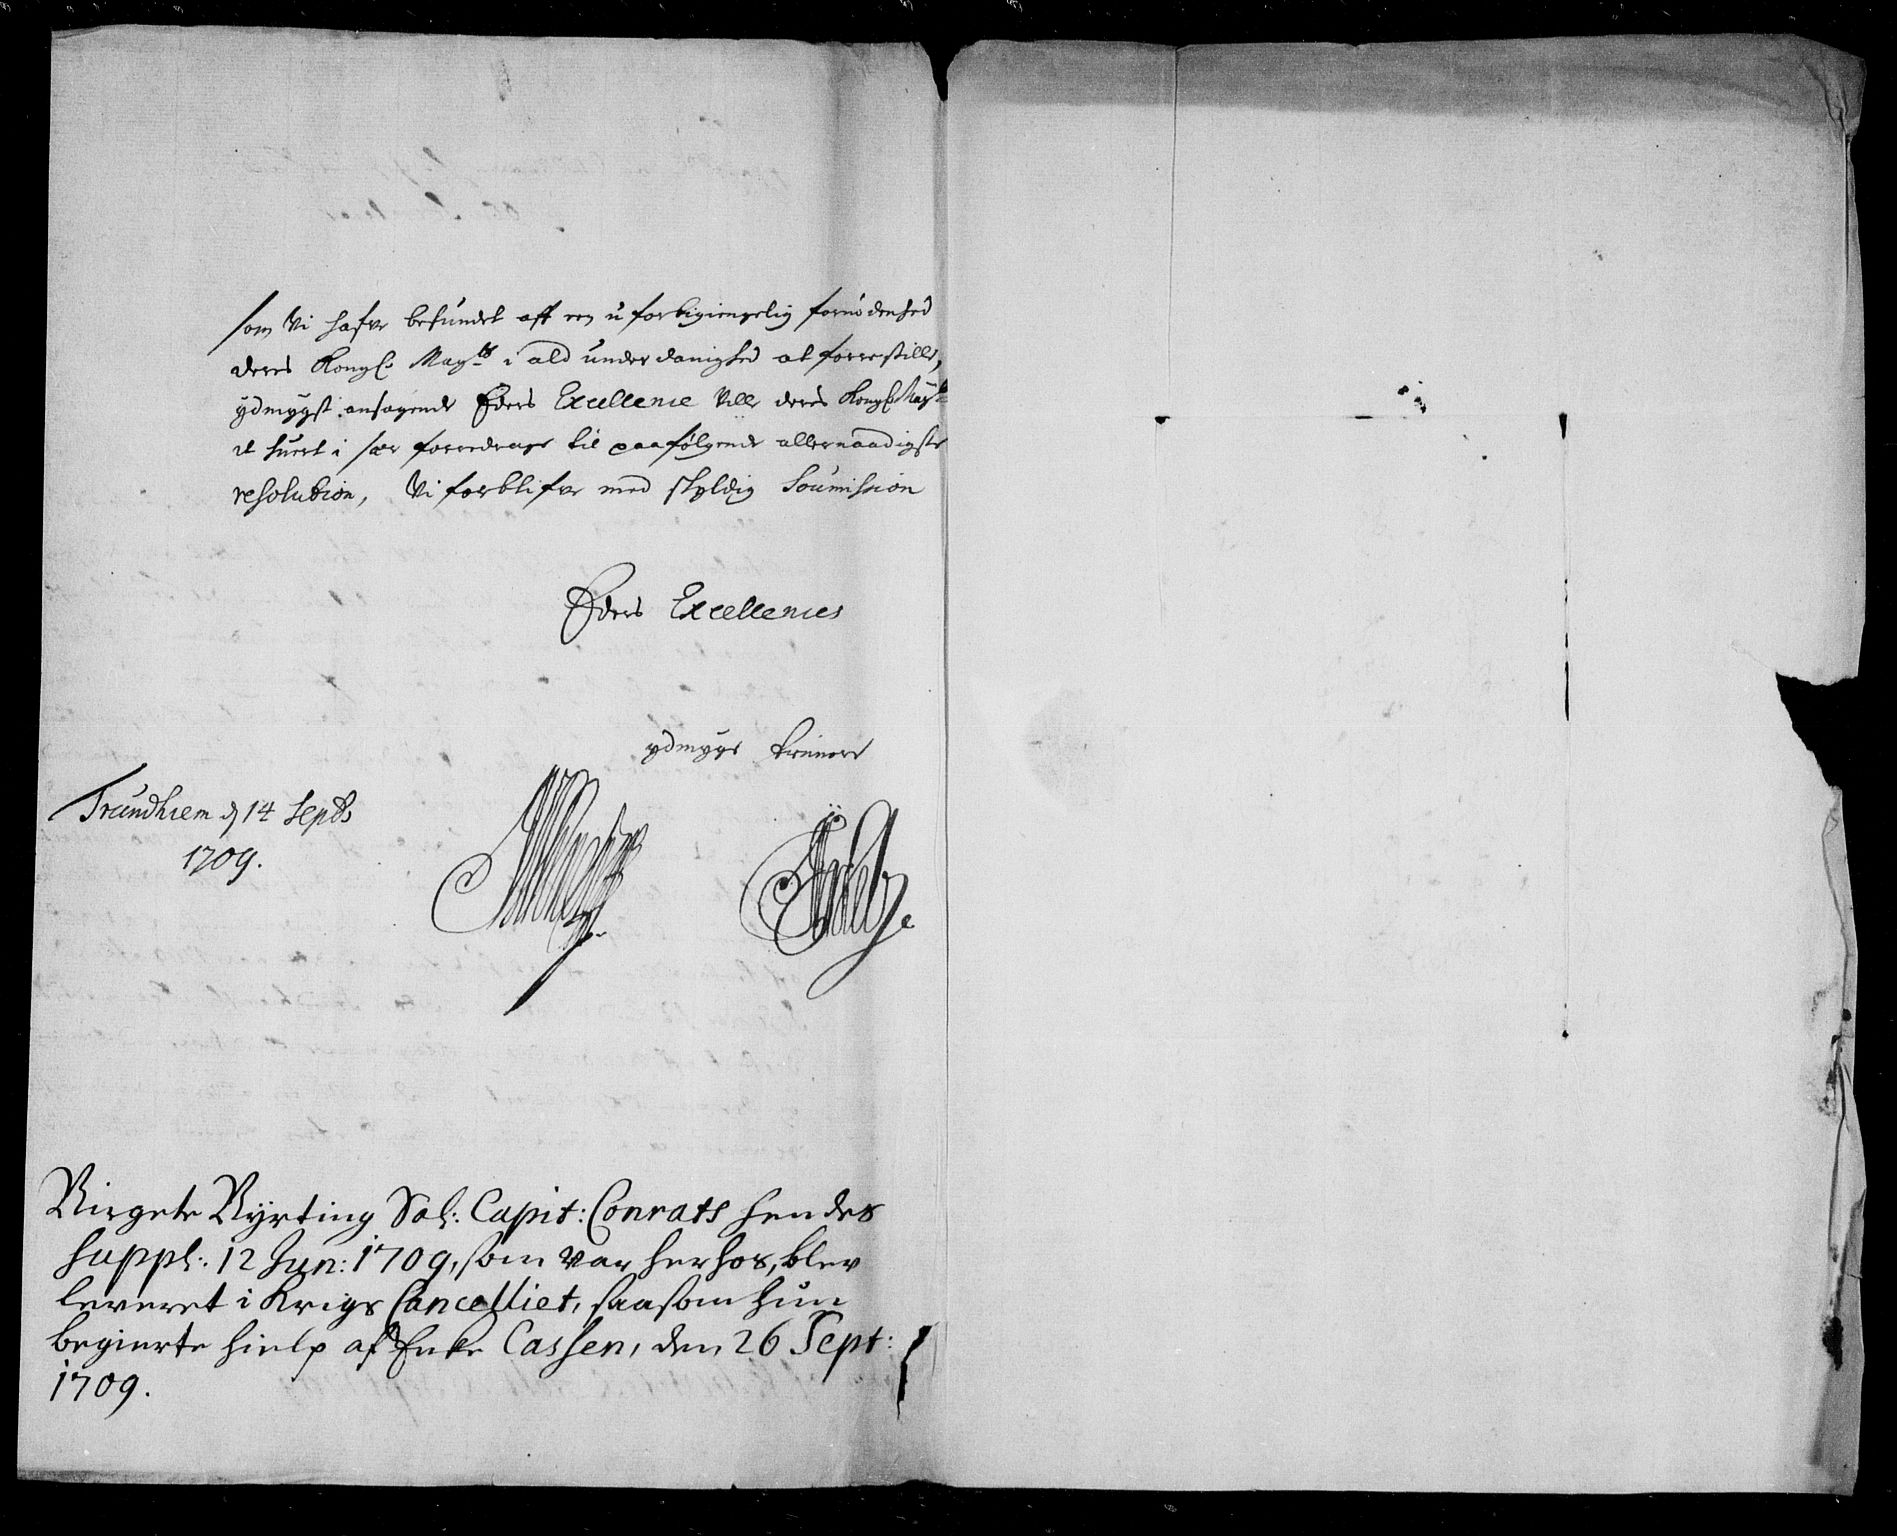 som Vi hafve befundet aff een uforbigiengelig fornødenhed
deres Kongl. Mayts i ald underdanighed at forrestille,
ydmygst ansøgende Eders Excellence Ville deres Kongl Mayt
et huert i sær forredrage til paafølgende allernaadigste
resolution, Vi forblifve med skyldig Soumission
Eders Excellences
ydmyge tienere
Trundhiem d 14 Septb
1709.
Birgete Nyrting Sal: Capit: Conrats hendes
suppl: 12 Jun: 1709, som var herhos, blev
leveret i Krigs Cancelliet, saasom hun
begierte hielp af Enke Cassen, den 26 Sept:
1709.